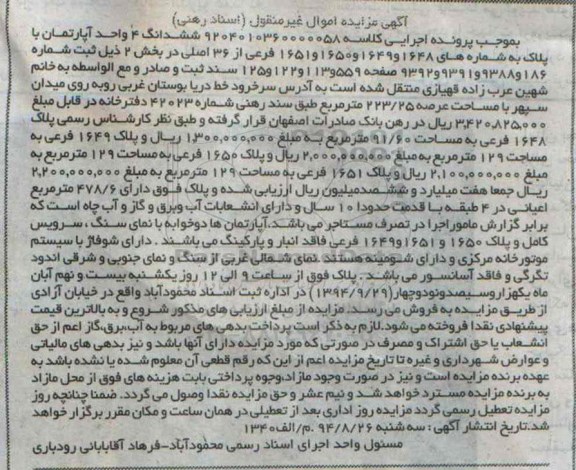 آگهی مزایده اموال غیرمنقول (اسناد رهنی)
بموجب پرونده اجرایی کلاسه ۹۲۰۴۰۱۰۳۶۰۰۰۰۰۵۸ ششدانگ ۴ واحد آپارتمان با
پلاک به شماره های ۱۶۴۸و۱۶۴۹و۱۶۵۰و۱۶۵۱ فرعی از ۳۶ اصلی در بخش ۲ ذیل ثبت شماره
۱۸۶و۹۳۸۸و۹۳۹۱و۹۳۹۲ صفحه ۵۵۹و۱۱۳و۱۲۲و۱۲۵ سند ثبت و صادر و مع الواسطه به خانم
شهین عرب زاده قهیازی منتقل شده است به آدرس سرخرود خط دریا بوستان غربی روبه روی میدان
سپهر با مساحت عرصه ۲۲۳/۲۵ مترمربع طبق سند رهنی شماره ۴۲۰۲۳ دفترخانه در قابل مبلغ
۳,۴۲۰,۸۲۵,۰۰۰ ریال در رهن بانک صادرات اصفهان قرار گرفته و طبق نظر کارشناس رسمی پلاک
۱۶۴۸ فرعی به مساحت ۹۱/۶۰ مترمربع به مبلغ ۱,۳۰۰,۰۰۰,۰۰۰ ریال و پلاک ۱۶۴۹ فرعی به
مساحت ۱۲۹ مترمربع به مبلغ ۲,۰۰۰,۰۰۰,۰۰۰ ریال و پلاک ۱۶۵۰ فرعی به مساحت ۱۲۹ مترمربع به
مبلغ ۲,۱۰۰,۰۰۰,۰۰۰ ریال و پلاک ۱۶۵۱ فرعی به مساحت ۱۲۹ مترمربع به مبلغ ۲,۲۰۰,۰۰۰,۰۰۰
ریال جمعا هفت میلیارد و ششصدمیلیون ریال ارزیابی شده و پلاک فوق دارای ۴۷۸/۶ مترمربع
اعیانی در ۴ طبقه با قدمت حدودا ۱۰ سال و دارای انشعابات آب وبرق و گاز و آب چاه است که
برابر گزارش مامور اجرا در تصرف مستاجر می باشد. آپارتمان ها دوخوابه با نمای سنگ ، سرویس
کامل و پلاک ۱۶۵۰ و ۱۶۵۱و۱۶۴۹ فرعی فاقد انبار و پارکینگ می باشند . دارای شوفاژ با سیستم
موتورخانه مرکزی و دارای شومینه هستند .نمای شمالی غربی از سنگ و نمای جنوبی و شرقی اندود
تگرگی و فاقد آسانسور می باشد . پلاک فوق از ساعت ۹ الی ۱۲ روز یکشنبه بیست و نهم آبان
ماه یکهزاروسیصدونودوچهار(۱۳۹۴/۹/۲۹) در اداره ثبت اسناد محمودآباد واقع در خیابان آزادی
از طریق مزایده به فروش می رسد. مزایده از مبلغ ارزیابی های مذکور شروع و به بالاترین قیمت
پیشنهادی نقدا فروخته می شود.لازم به ذکر است پرداخت بدهی های مربوط به آب،برق،گاز اعم از حق
انشعاب یا حق اشتراک و مصرف در صورتی که مورد مزایده دارای آنها باشد و نیز بدهی های مالیاتی
و عوارض شهرداری و غیره تا تاریخ مزایده اعم از این که رقم قطعی آن معلوم شده یا نشده باشد به
عهده برنده مزایده است و نیز در صورت وجود مازاد،وجوه پرداختی بابت هزینه های فوق از محل مازاد
به برنده مزایده مسترد خواهد شد و نیم عشر و حق مزایده نقدا وصول می گردد. ضمنا چنانچه روز
مزایده تعطیل رسمی گردد مزایده روز اداری بعد از تعطیلی در همان ساعت و مکان مقرر برگزار خواهد
شد.تاریخ انتشار آگهی : سه شنبه ۹۴/۸/۲۶ .م/الف ۱۳۴۰
مسئول واحد اجرای اسناد رسمی محمودآباد-فرهاد آقابابائی رودباری